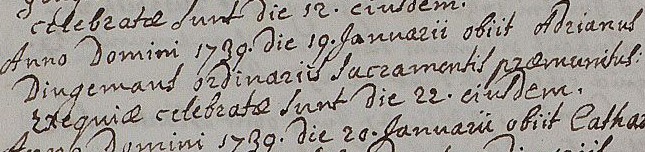 celebratæ sunt die 12. eiusdem.
Anno Domini 1739. die 19. Januarii obiit Adrianus
Dingemans ordinariis sacramentis præmunitus:
Exequiæ celebratæ sunt die 22. eiusdem.
Anno Domini 1739. die 20. Januarii obiit Catha